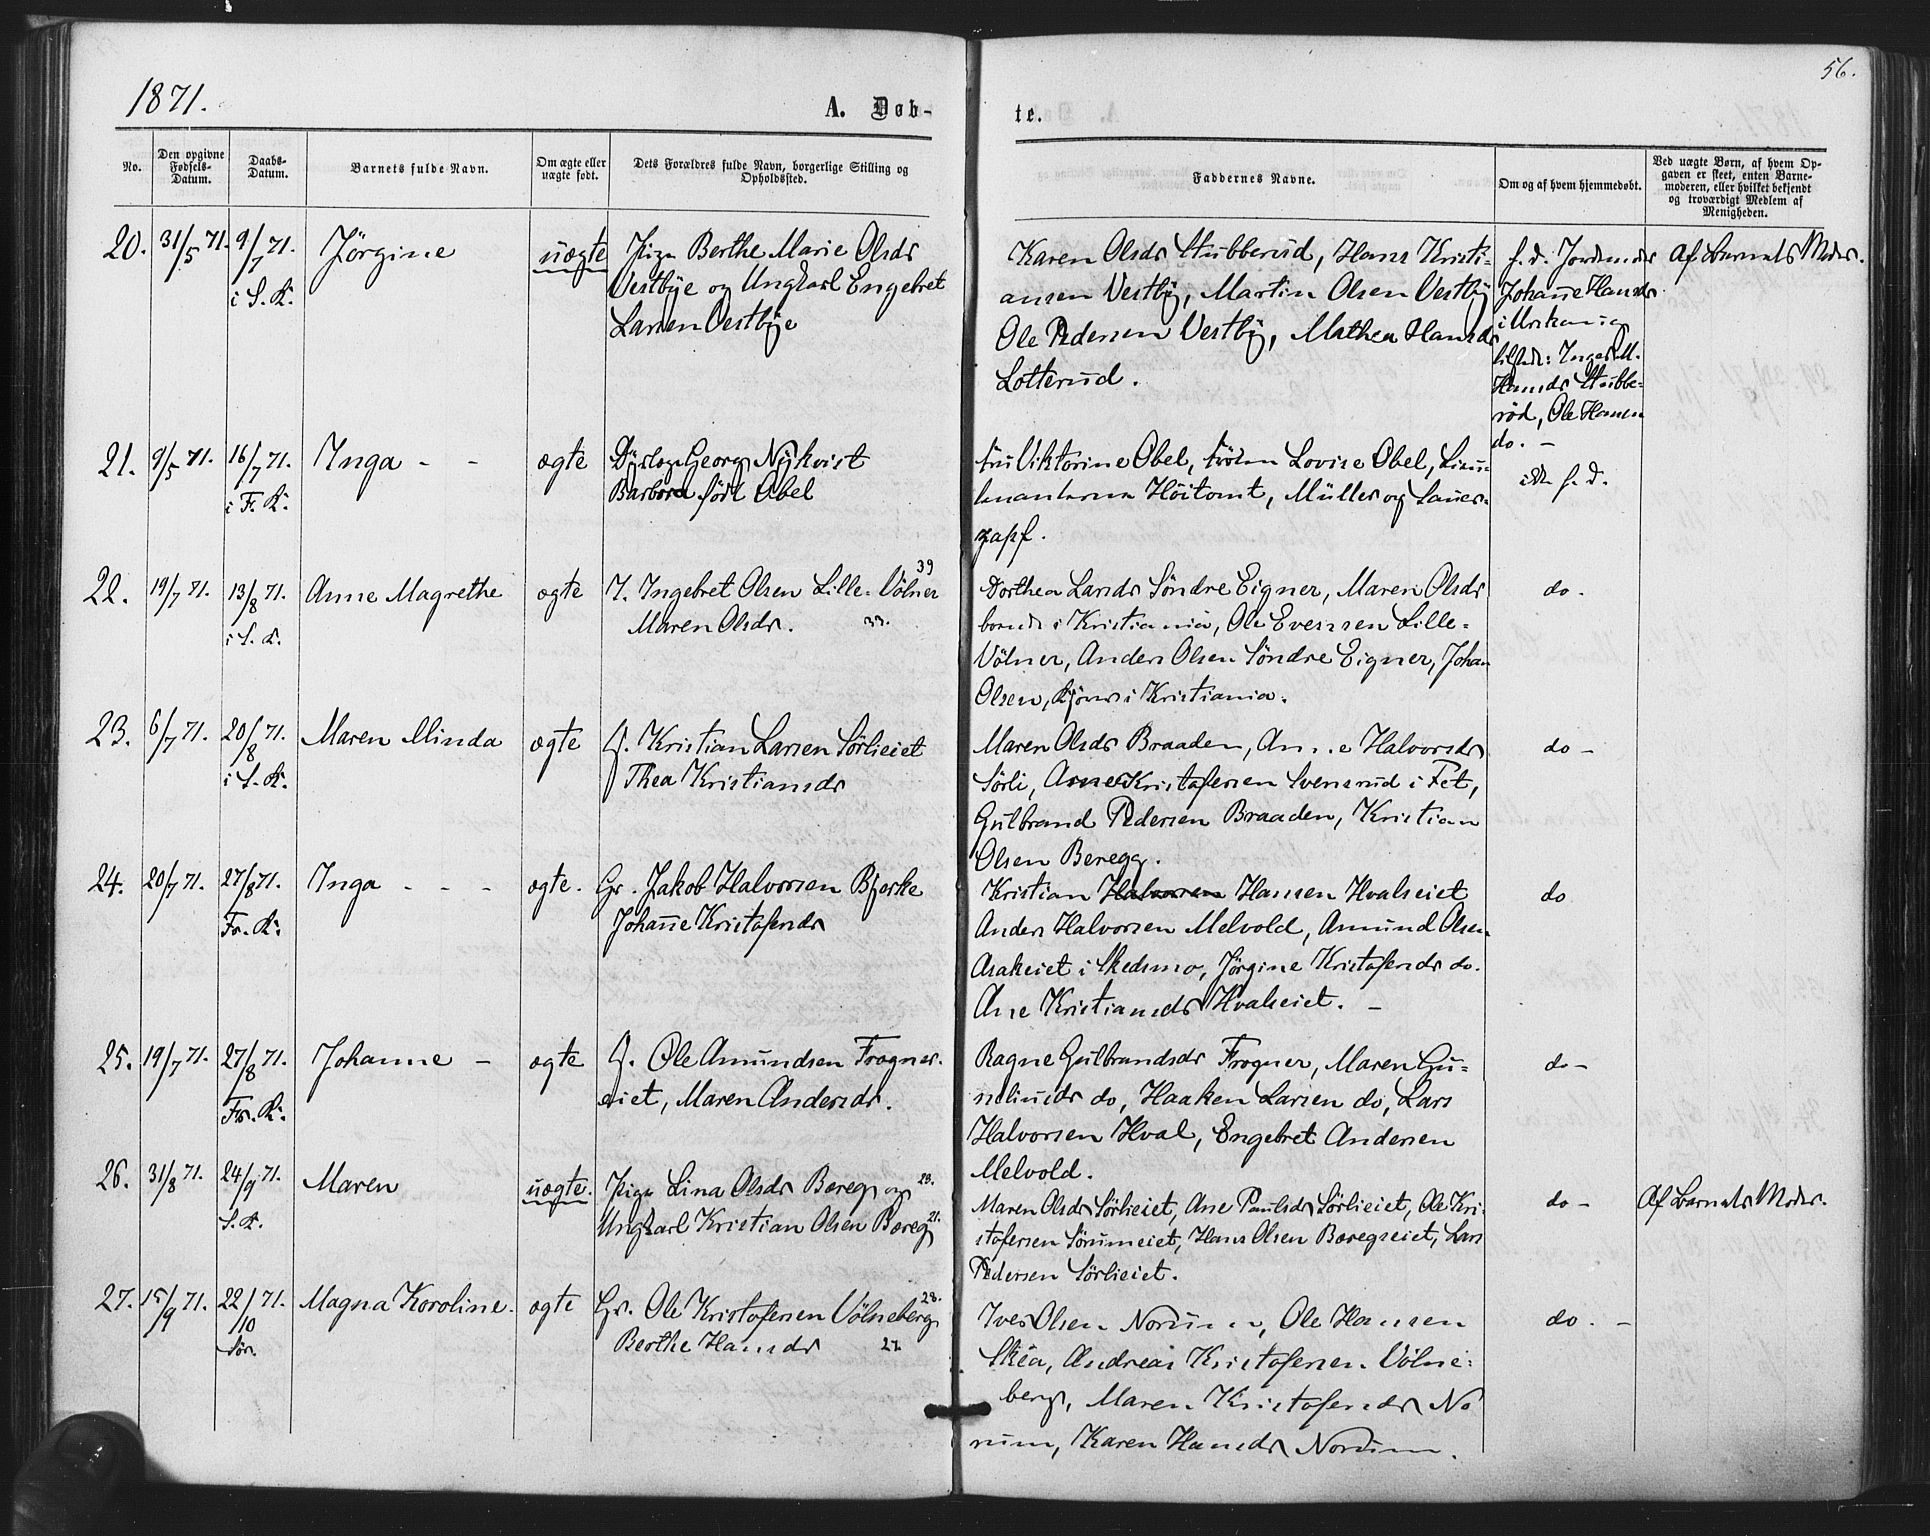 1871.
A. Døb-
te.
56.
No.
Den opgivne Fødsels-Datum.
Daabs-Datum.
Barnets fulde Navn.
Om ægte eller uægte født.
Dets Forældres fulde Navn, borgerlige Stilling og Opholdssted.
Faddernes Navne.
Om og af hvem hjemmedøbt.
Ved uægte Børn, af hvem Opgaven er skeet, enten Barnemoderen, eller hvilket bekjendt og troværdigt Medlem af Menigheden.
20. 31/5 71. 9/7 71. i S. K. Jørgine uægte
Pige Berthe Marie Olsdr
Vestbye og Ungkarl Engebret
Larsen Vestbye
Karen Olsdr Stubberud, Hans Kristi-
ansen Vestby, Martin Olsen Vestby
Ole Pedersen Vestby, Mathea Hansdr
Lotterud.
f. d. Jordemoder
Johanne Hansdr
i
tilstede: Inger M.
Hansdr Stubbe-
rød, Ole Hansen
do. -
Af Barnets Moder.
21. 9/5 71. 16/7 71. i F. K. Inga - - ægte
Georg Nykvist
Barbora født Abel
Fru Viktorine Abel, Frøken Lovise Abel, Lieu-
tenanterne Höitomt, Müller og Sauer-
zapf.
f. d.
22. 19/7 71. 13/8 71. i S. K. Anne Magrethe ægte
I. Ingebret Olsen Lille-Völner 39
Maren Olsdr. 33.
Dorthea Larsdr Söndre Eigner, Maren Olsdr
boende i Kristiania, Ole Evensen Lille-
Völner, Anders Olsen Söndre Eigner, Johan
Olsen, i Kristiania.
do.
23. 6/7 71. 20/8 71. i S. K. Maren Minda ægte
G. Kristian Larsen Sörlieiet
Thea Kristiansdr
Maren Olsdr Braaden, Anne Halvorsdr
Sörli, Arne Kristofersen Svensrud i Fet,
Gulbrand Pedersen Braaden, Kristian
Olsen Beregg.
do -
24. 20/7 71. 27/8 71. Fr. K. Inga - - - ægte.
Gr. Jakob Halvorsen Bjerke
Johanne Kristofersdr
Kristian Halvorsen Hansen Hvalseiet
Anders Halvorsen Melvold, Amund Olsen
Asakeiet i Skedsmo, Jörgine Kristofersdr do.
Ane Kristiansdr Hvalseiet. -
do
25. 19/7 71. 27/8 71. Fr. K. Johanne - ægte
G. Ole Amundsen Frogner-
eiet, Maren Andersdr.
Ragne Gulbrandsdr Frogner, Maren Gu-
neliusdr do, Haaken Larsen do, Lars
Halvorsen Hval, Engebret Andersen
Melvold.
do -
26. 31/8 71. 24/9 71. S. K. Maren uægte.
Pige Lina Olsdr Bereg og 23.
Ungkarl Kristian Olsen Bæreg 21.
Maren Olsdr Sörlieiet, Ane Paulsdr Sörlieiet, Ole Kri-
stofersen Sörumeiet, Hans Olsen Bæregseiet, Lars
Pedersen Sörlieiet.
do -
Af Barnets Moder.
27. 15/9 71. 22/10 71. Sör. Magna Karoline. ægte
Gr. Ole Kristofersen Völneberg 28.
Berthe Hansdr 27
Iver Olsen Nordum, Ole Hansen
Skea, Andreas Kristofersen Völne-
berg, Maren Kristofersdr No
rum, Karen Hansdr Nordum.
do. -